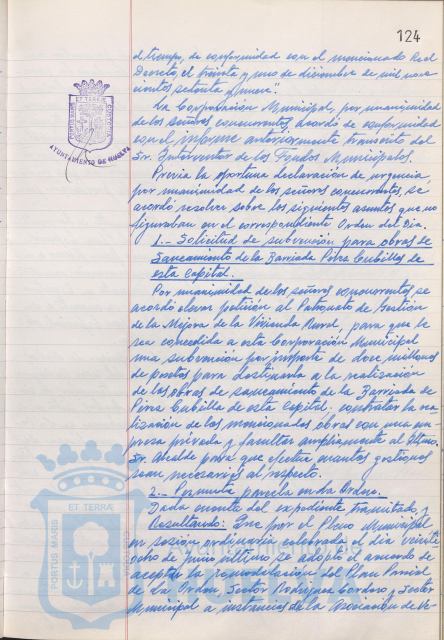 124
el tiempo, de conformidad con el mencionado Real
Decreto, el treinta y uno de diciembre de mil nove
cientos setenta y nueve".
La Corporación Municipal, por unanimidad
de los señores concurrentes acordó de conformidad
con el informe anteriormente transcrito del
Sr. Interventor de los Fondos Municipales.
Previa la oportuna declaración de urgencia,
por unanimidad de los señores concurrentes, se
acordó resolver sobre los siguientes asuntos que no
figuraban en el correspondiente Orden del Día.
1.- Solicitud de subvención para obras de
Saneamiento de la Barriada Pérez Cubillas de
esta capital.
Por unanimidad de los señores concurrentes se
acordó elevar petición al Patronato de Gestión
de la Mejora de la Vivienda Rural, para que le
sea concedida a esta Corporación Municipal
una subvención por importe de doce millones
de pesetas para destinarla a la realización
de las obras de saneamiento de la Barriada de
Pérez Cubillas de esta capital, contratar la rea
lización de las mencionadas obras con una em-
presa privada y facultar ampliamente al Iltmo.
Sr. Alcalde para que efectúe cuantas gestiones
sean necesarias al respecto.
2.- Permuta parcela en La Orden.
Dada cuenta del expediente tramitado, y
Resultando: Que por el Pleno Municipal
en sesión ordinaria celebrada el día veinte
ocho de junio último se adoptó el acuerdo de
aceptar la remodelación del Plan Parcial
de La Orden, Sector Rodríguez Cordero, y Sector
Municipal a instancias de la Asociación de Ve-
AYUNTAMIENTO DE HUELVA
PORTUS MARIS
ET TERRÆ